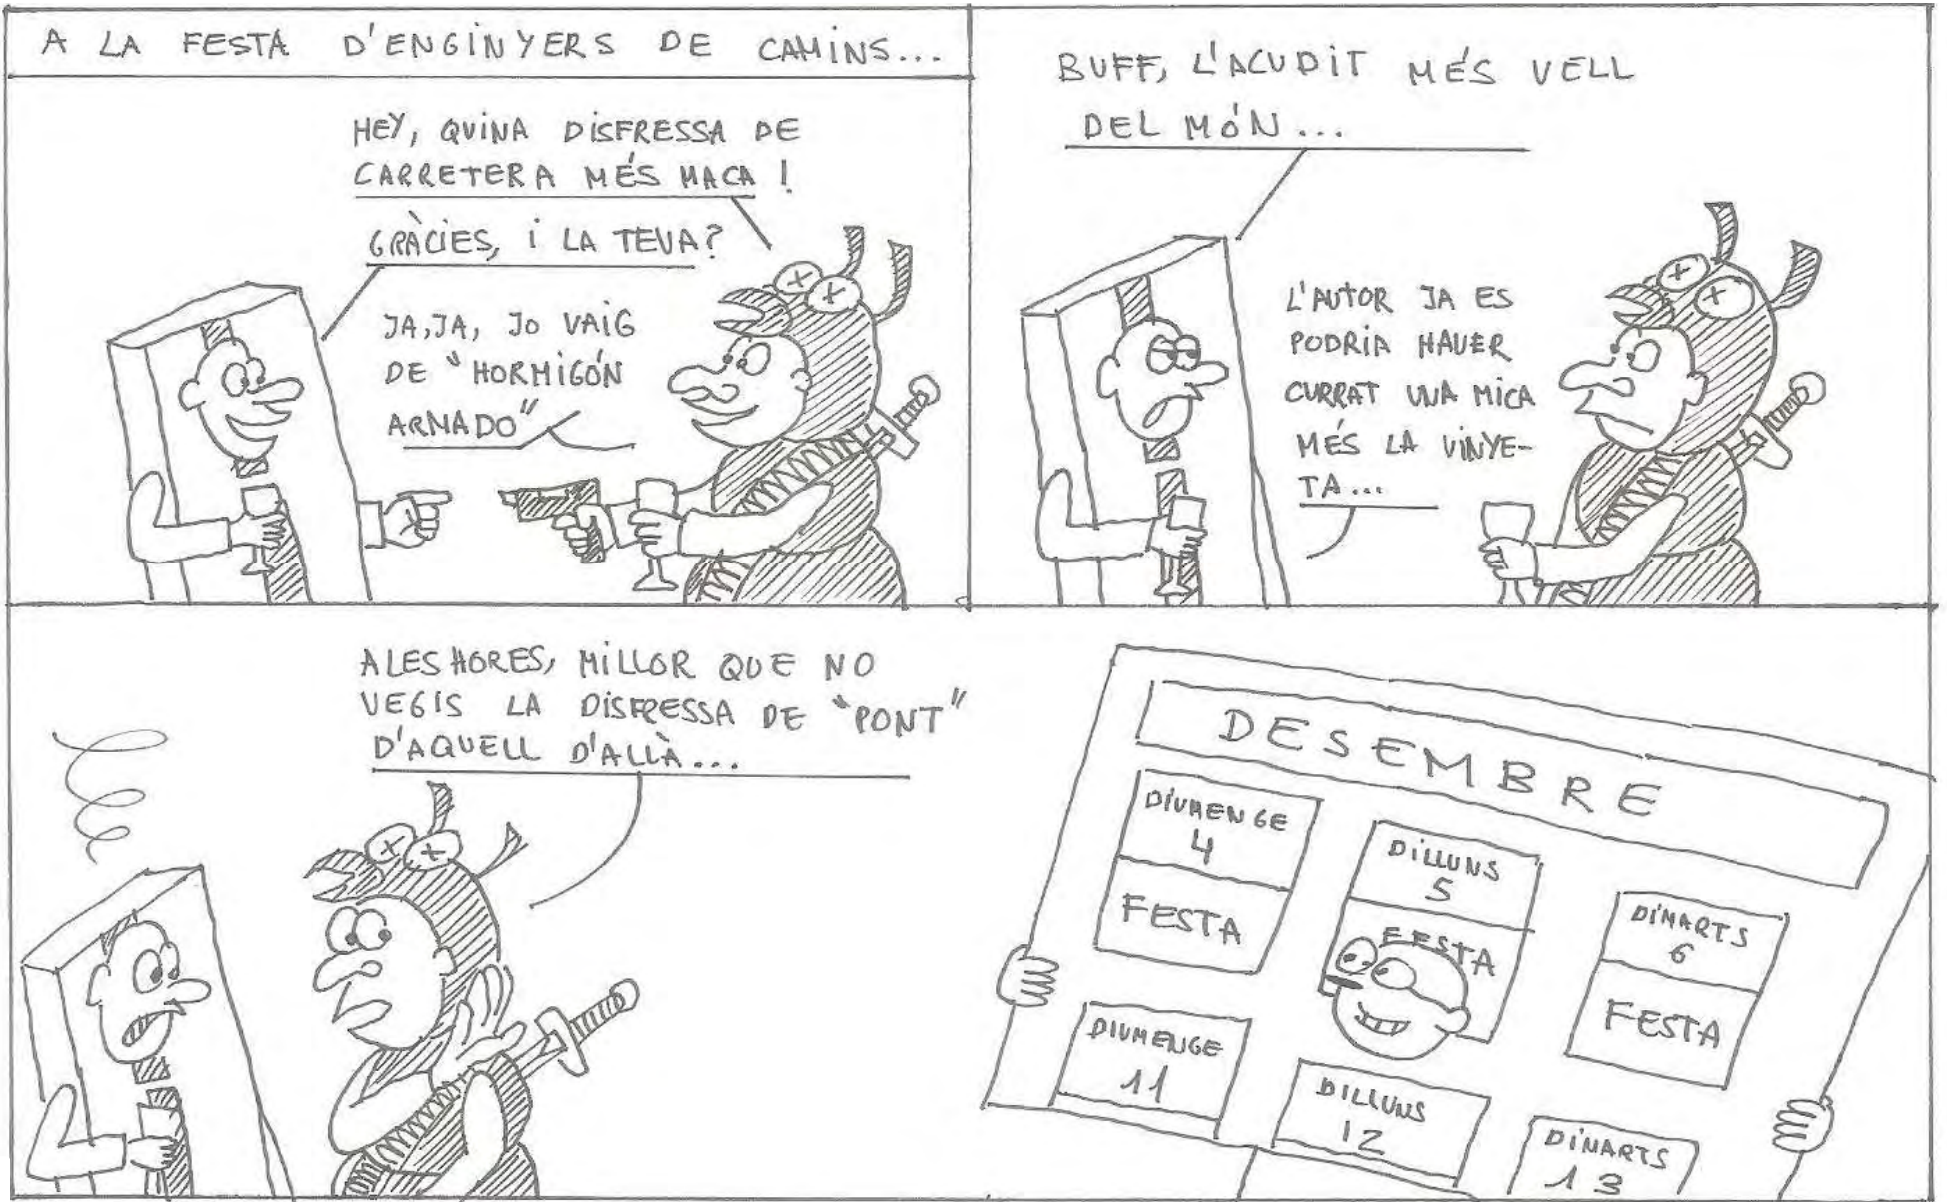 A LA FESTA D'ENGINYERS DE CAMINS...
HEY, QUINA DISFRESSA DE
CARRETERA MÉS MACA !
GRÀCIES, I LA TEVA?
JA, JA, JO VAIG
DE "HORMIGÓN
ARMADO"
BUFF, L'ACUDIT MÉS VELL
DEL MÓN...
L'AUTOR JA ES
PODRIA HAVER
CURRAT UNA MICA
MÉS LA VINYE-
TA...
ALESHORES, MILLOR QUE NO
VEGIS LA DISFRESSA DE "PONT"
D'AQUELL D'ALLÀ...
DESEMBRE
DIUMENGE
4
FESTA
DILLUNS
5
FESTA
DIMARTS
6
FESTA
DIUMENGE
11
DILLUNS
12
DIMARTS
13